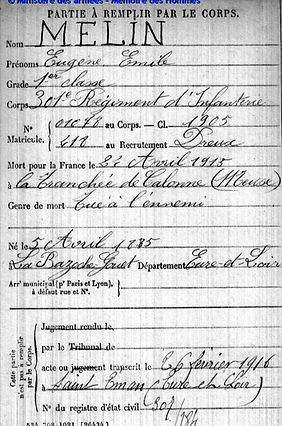 © Ministère des armées - Mémoire des Hommes
PARTIE À REMPLIR PAR LE CORPS.
Nom MELIN
Prénoms Eugène Emile
Grade 1er classe
Corps 301e Régiment d'Infanterie
N° 01078 au Corps. — Cl. 1905
Matricule. 419 au Recrutement Dreux
Mort pour la France le 22 Avril 1915
à la Tranchée de Calonne (Meuse)
Genre de mort Tué à l'ennemi
Né le 5 Avril 1885
à La Bazoche Gouet Département Eure-et-Loir
Arrt municipal (pr Paris et Lyon),
à défaut rue et N°.
Cette partie
n'est pas à remplir
par le Corps.
Jugement rendu le
par le Tribunal de
acte ou jugement transcrit le 26 février 1916
à Saint Eman (Eure et Loir)
N° du registre d'état civil